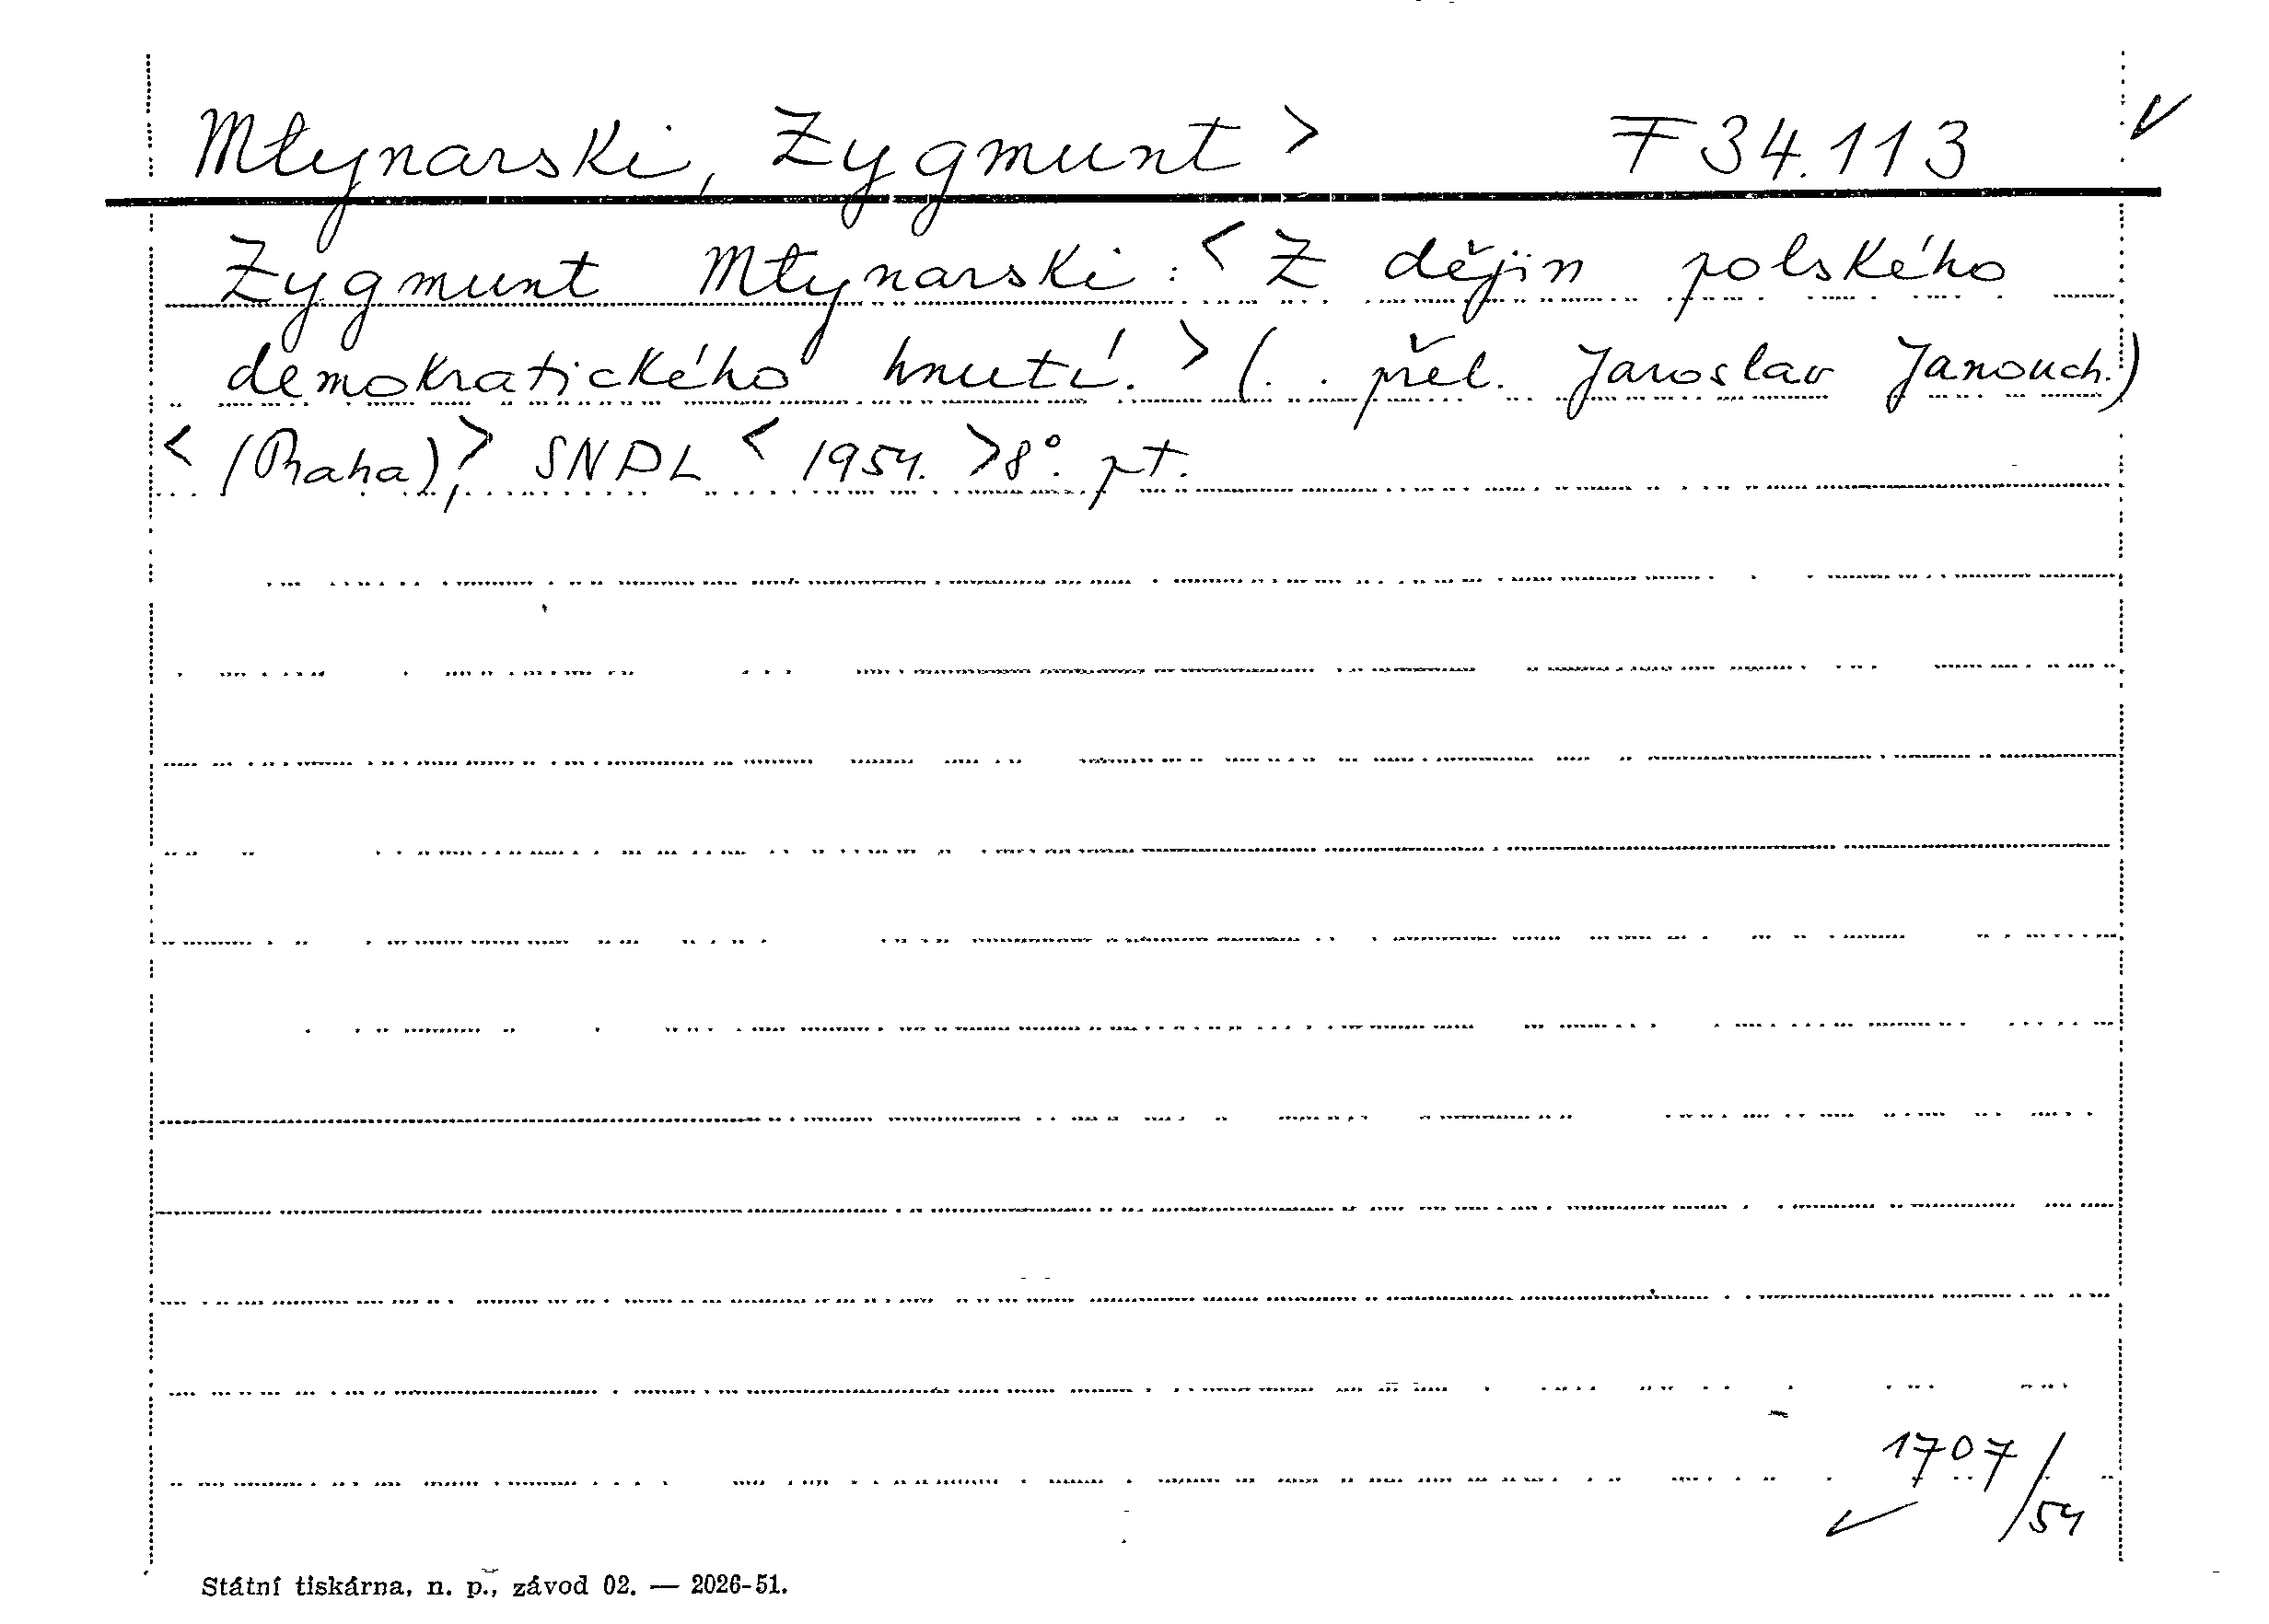 Młynarski, Zygmunt > F 34.113 ✓
Zygmunt Młynarski: < Z dějin polského
demokratického hnutí. > (. . přel. Jaroslav Janouch.)
< (Praha), > SNPL < 1954. > 8°. pt.
1707/54
✓
Státní tiskárna, n. p., závod 02. — 2026-51.